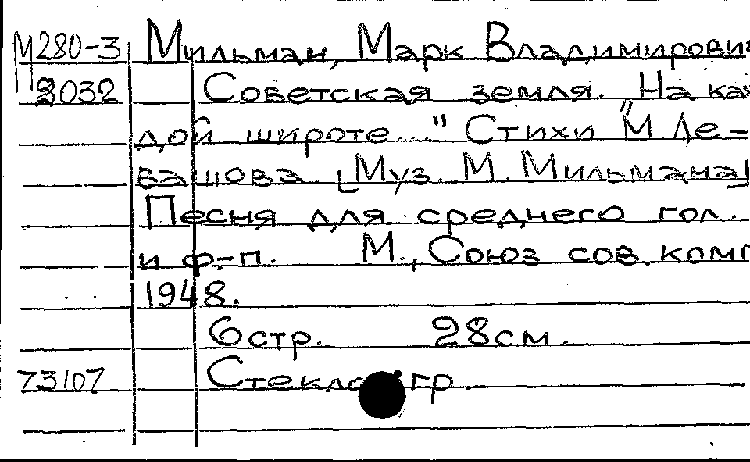 М280-3 Мильман, Марк Владимирович
П3032 Советская земля. "На каж-
дой широте..." Стихи М Ле-
вашова [Муз. М. Мильмана]
Песня для среднего гол.
и ф-п. М., Союз сов. комп
1948.
6 стр. 28 см.
73107 Стеклогр.